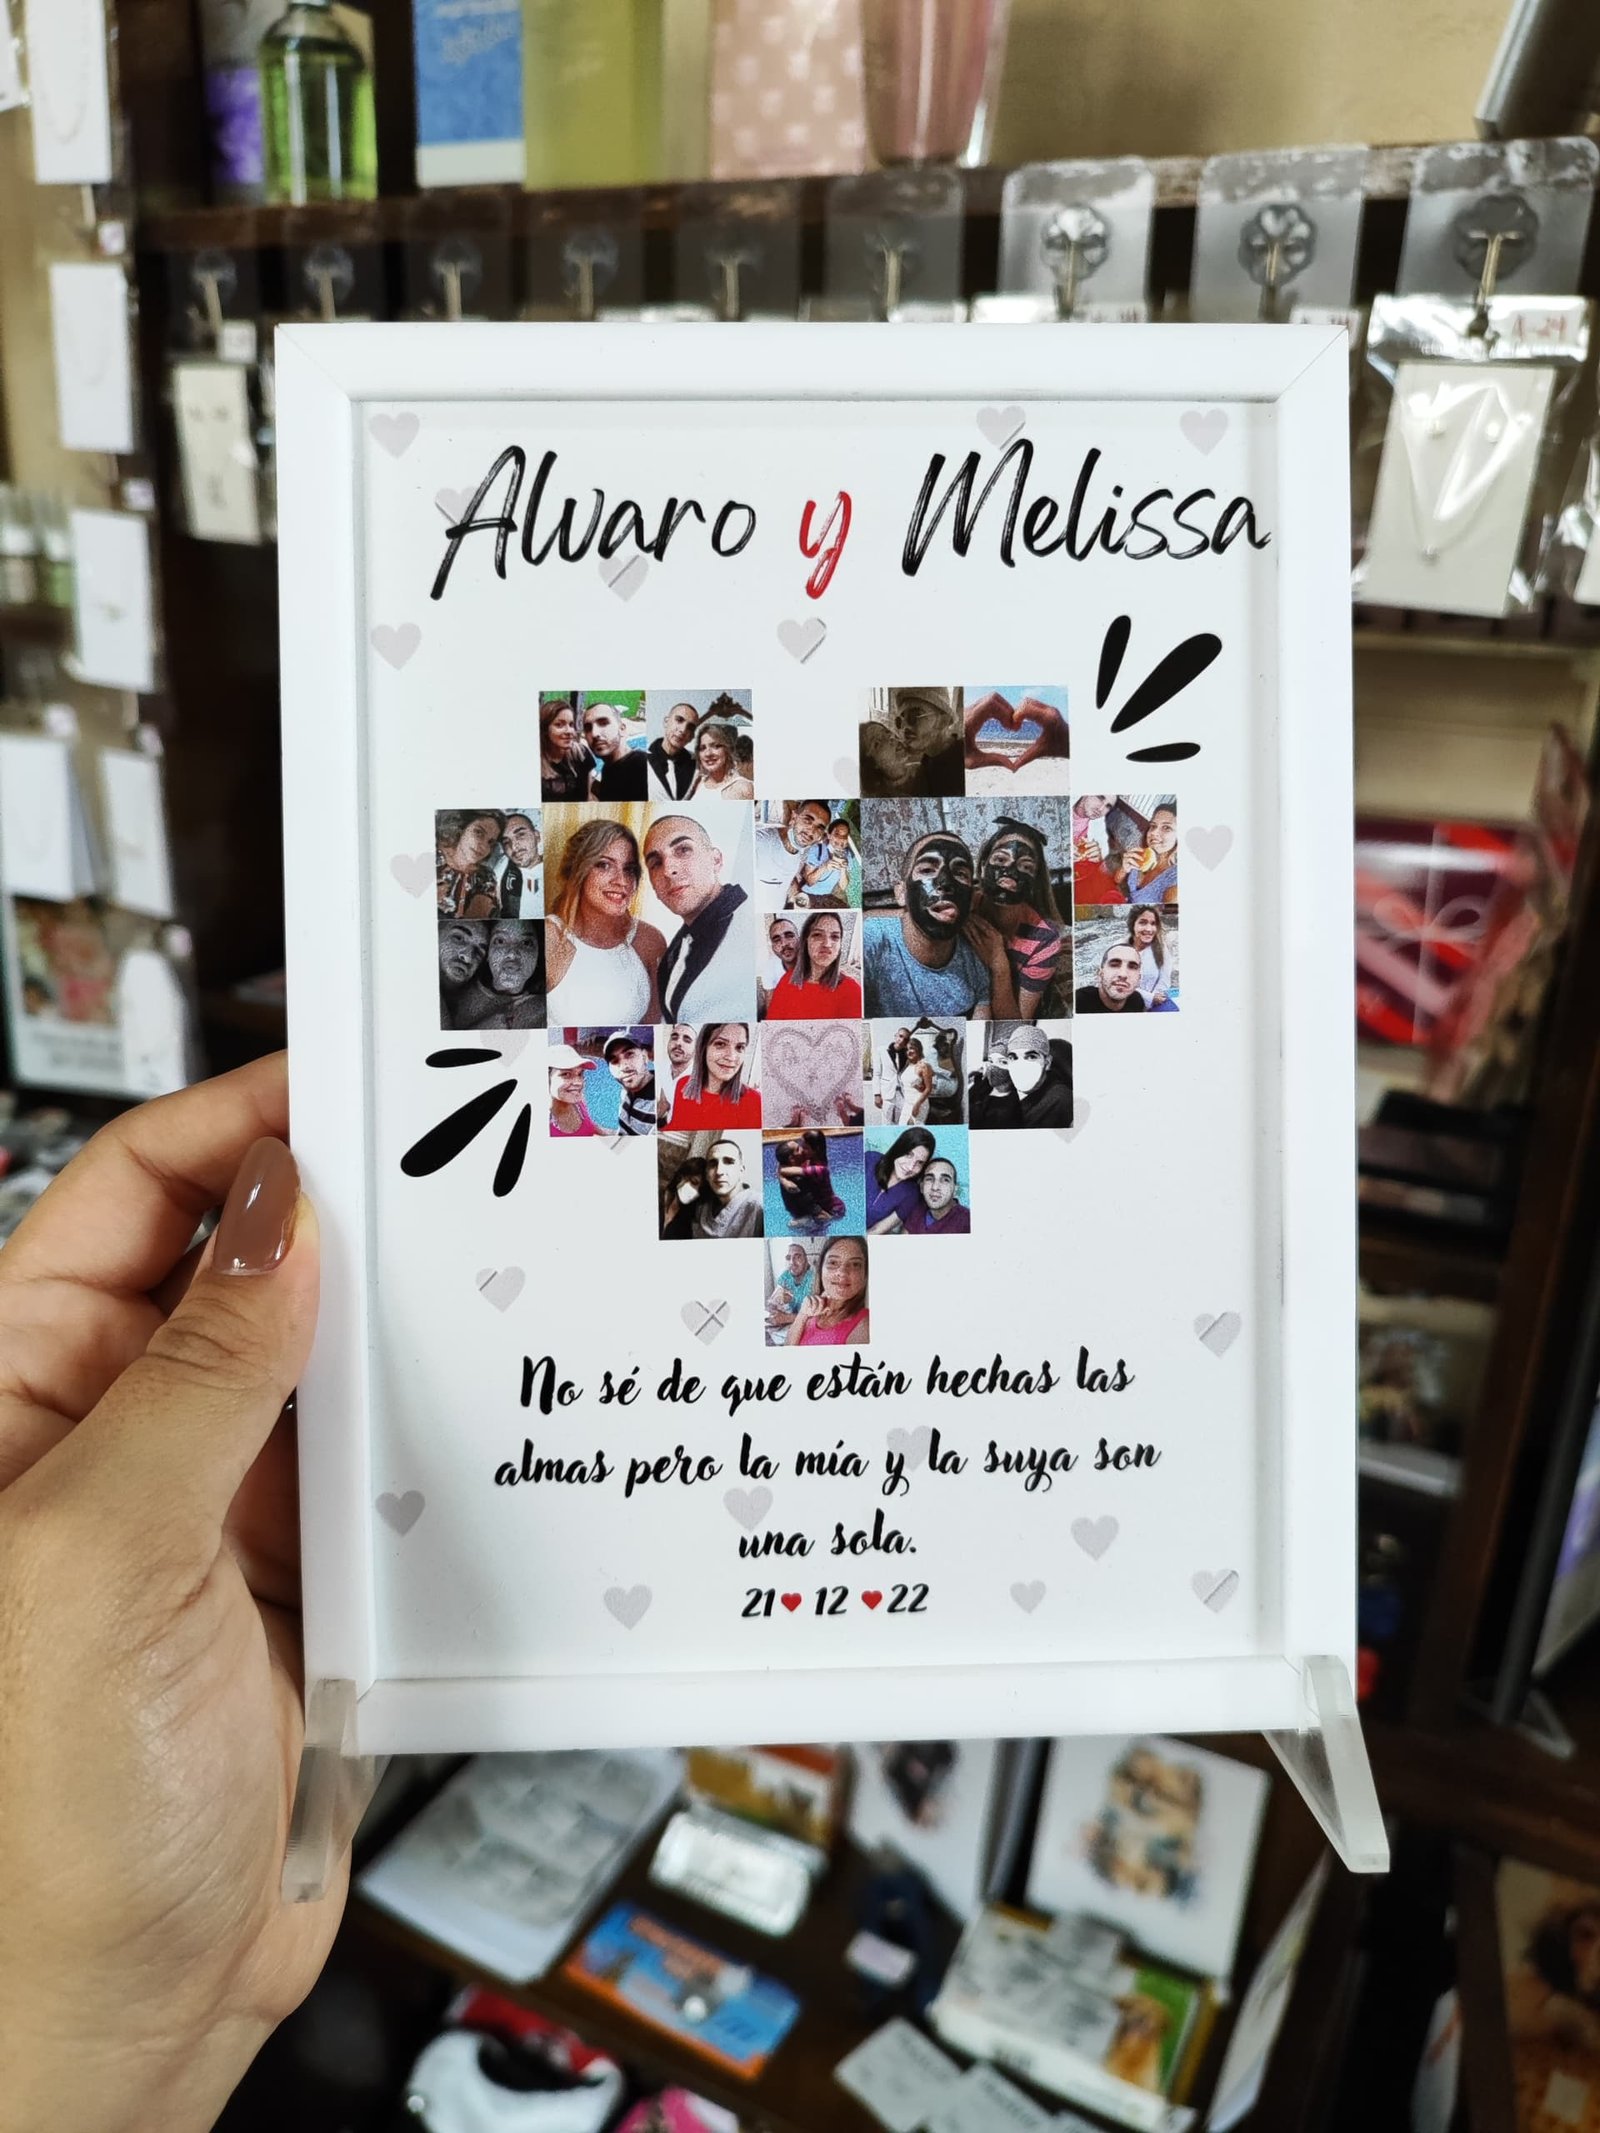 Alvaro y Melissa
No sé de que están hechas las
almas pero la mía y la suya son
una sola.
21 12 22